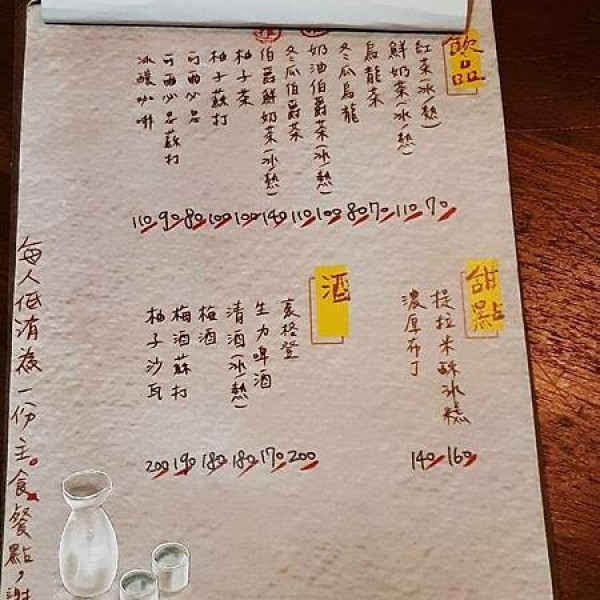 飲品
紅茶(冰/熱) 70
鮮奶茶(冰/熱) 110
烏龍茶 70
冬瓜烏龍 80
奶油伯爵茶(冰/熱) 100
冬瓜伯爵茶 110
伯爵鮮奶茶(冰/熱) 140
柚子茶 100
柚子蘇打 100
可爾必思 80
可爾必思蘇打 90
冰釀咖啡 110
甜點
提拉米酥冰糕 160
濃厚布丁 140
酒
豪格登 200
生力啤酒 170
清酒(冰/熱) 180
梅酒 180
梅酒蘇打 190
柚子沙瓦 200
每人低消為一份主食餐點,謝